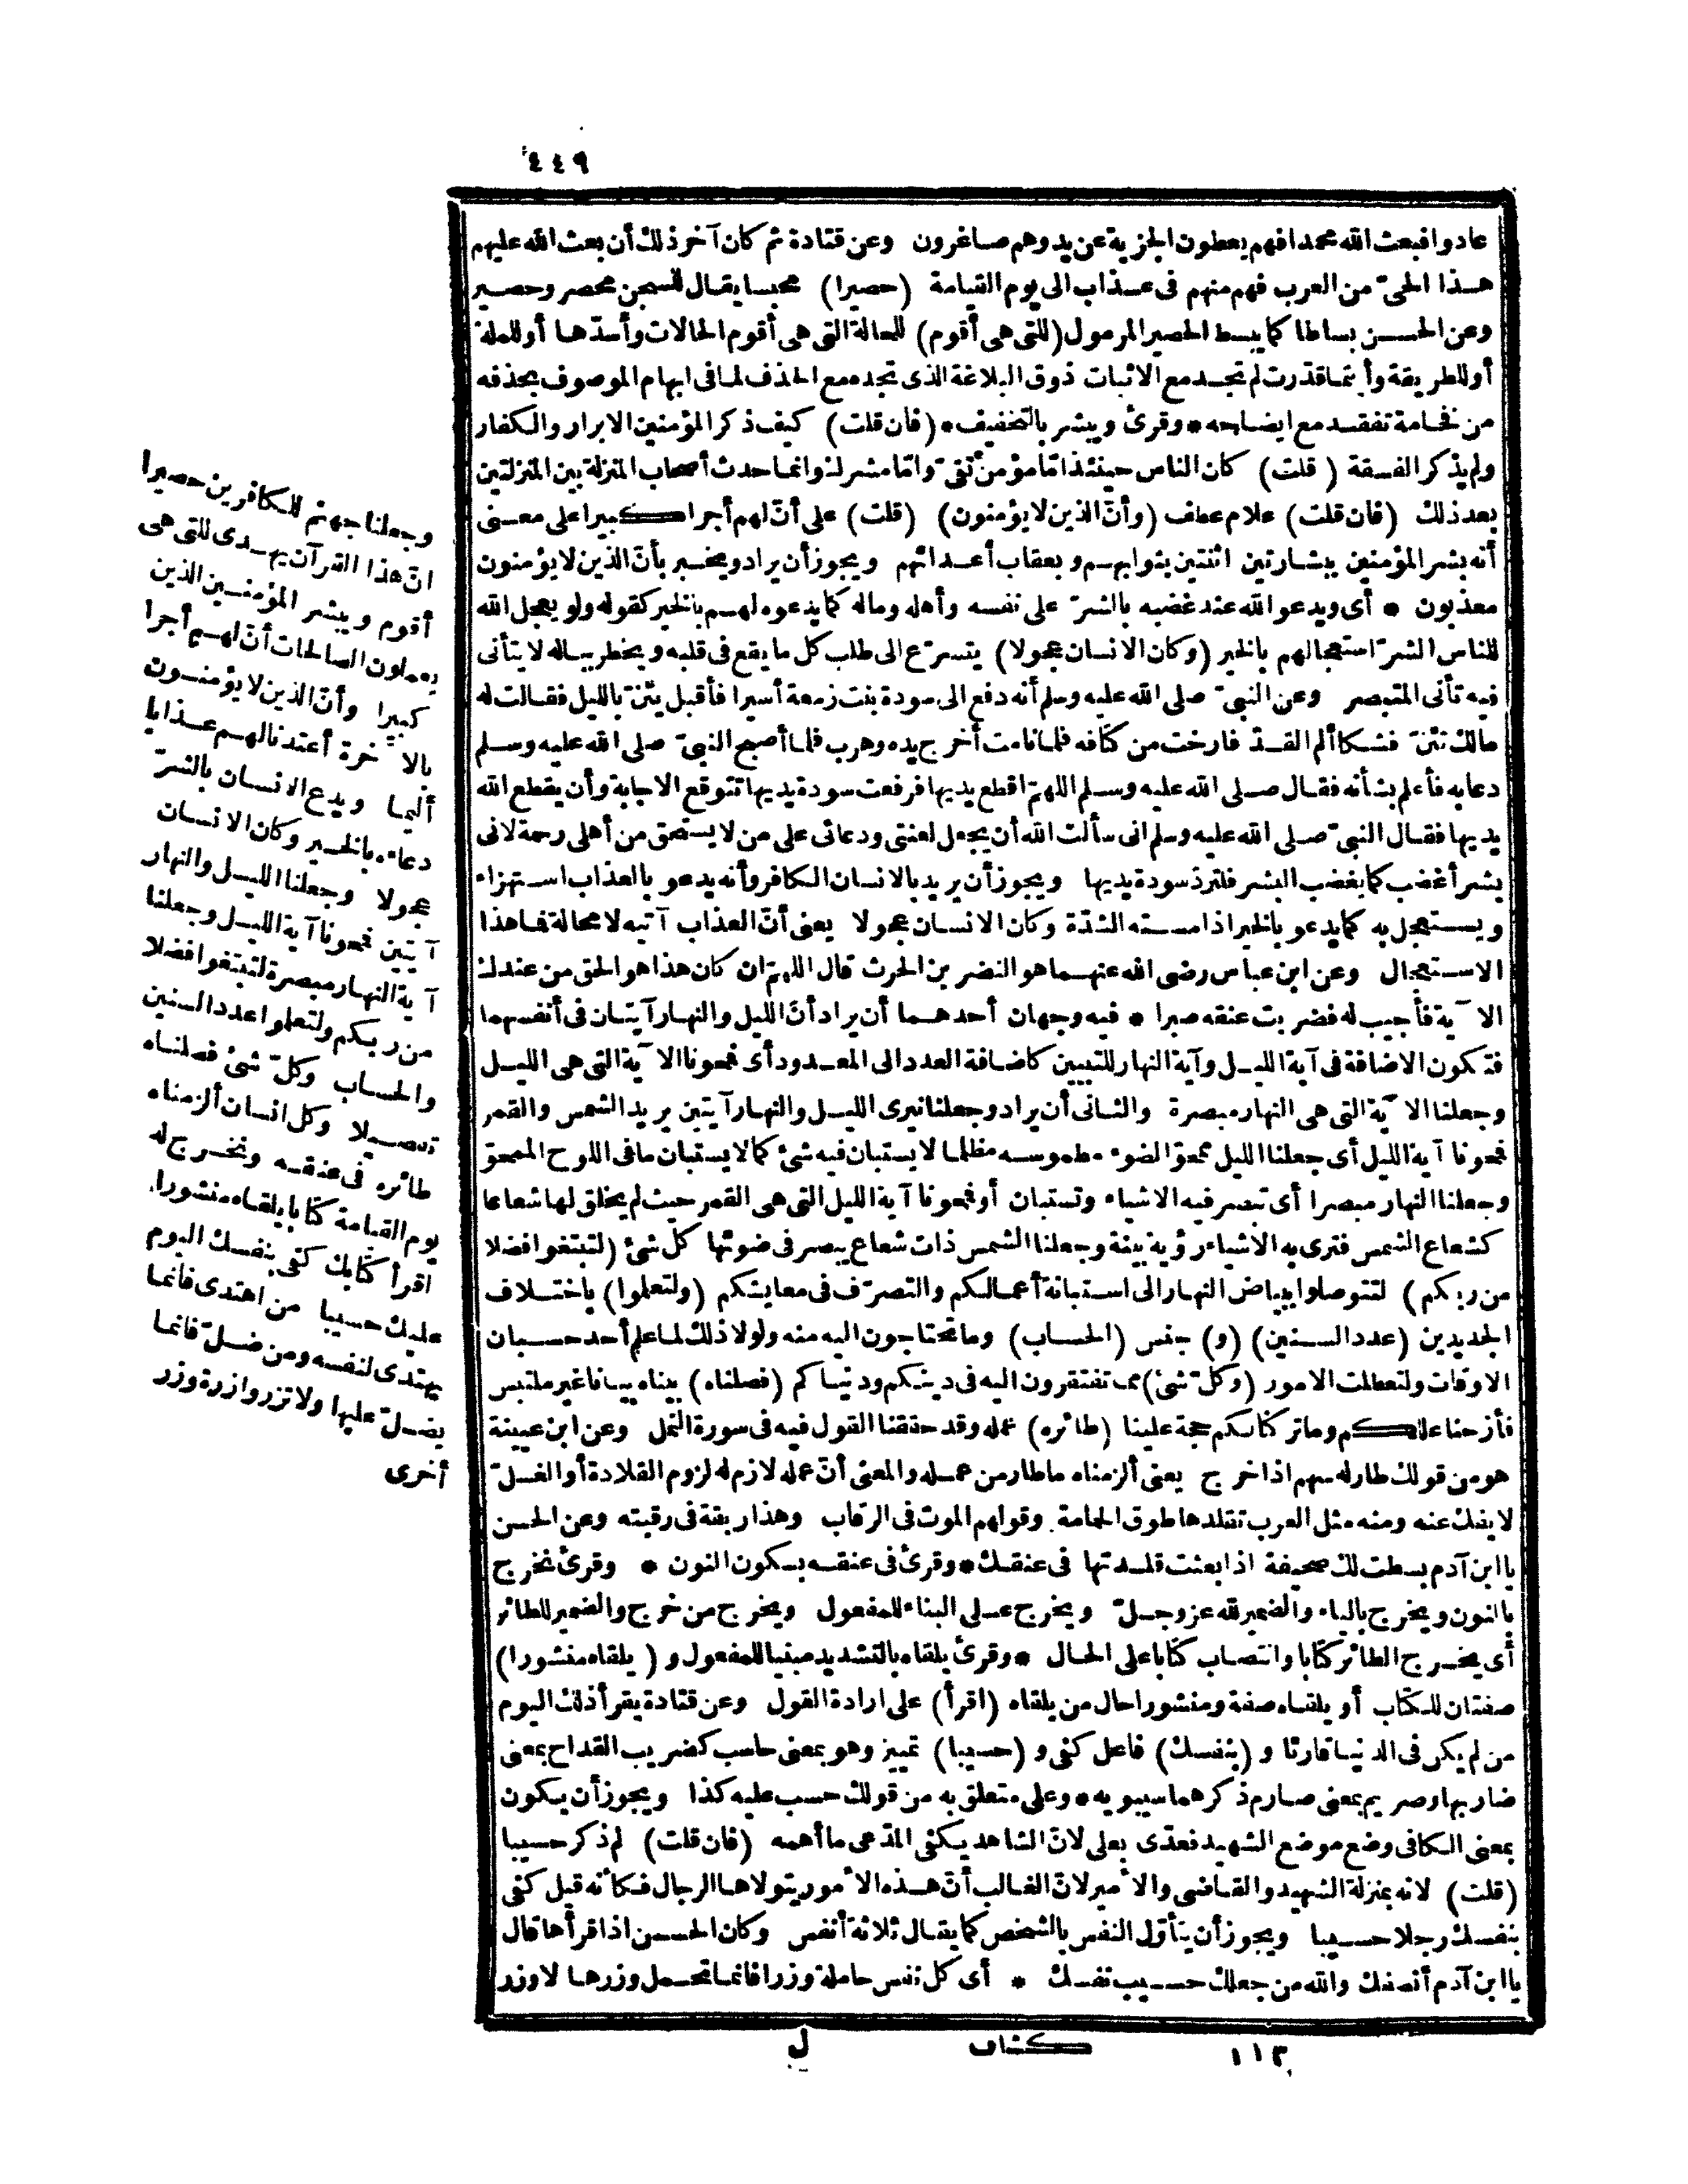 ٤٤٩
عادوا فبعث الله محمدا فهم يعطون الجزية عن يد وهم صاغرون وعن قتادة ثم كان آخر ذلك أن بعث الله عليهم
هذا الحىّ من العرب فهم منهم فى عذاب الى يوم القيامة (حصيرا) محبسا يقال للسجن محصر وحصير
وعن الحسن بساطا كما يبسط الحصير المرمول (للتى هى أقوم) للحالة التى هى أقوم الحالات وأسدّها أو للملة
أو للطريقة وأيتما قدّرت لم تجد مع الاثبات ذوق البلاغة الذى تجده مع الحذف لما فى ابهام الموصوف بحذفه
من فخامة تفقد مع ايضاحه * وقرئ ويبشر بالتخفيف * (فان قلت) كيف ذكر المؤمنين الابرار والكفار
ولم يذكر الفسقة (قلت) كان الناس حينئذ امّا مؤمن تقىّ وامّا مشرك وانما حدث أصحاب المنزلة بين المنزلتين
بعد ذلك (فان قلت) علام عطف (وأنّ الذين لا يؤمنون) (قلت) على أنّ لهم أجرا كبيرا على معنى
أنه بشر المؤمنين ببشارتين اثنتين بثوابهم وبعقاب أعدائهم ويجوز أن يراد ويخبر بأنّ الذين لا يؤمنون
معذبون * أى ويدعو الله عند غضبه بالشرّ على نفسه وأهله وماله كما يدعوه لهم بالخير كقوله ولو يعجل الله
للناس الشرّ استعجالهم بالخير (وكان الانسان عجولا) يتسرّع الى طلب كل ما يقع فى قلبه ويخطر بباله لا يتأنى
فيه تأنى المتبصر وعن النبىّ صلى الله عليه وسلم أنه دفع الى سودة بنت زمعة أسيرا فأقبل يئنّ بالليل فقالت له
مالك تئنّ فشكا ألم القدّ فارخت من كتافه فلما نامت أخرج يده وهرب فلما أصبح النبىّ صلى الله عليه وسلم
دعا به فأعلم بشأنه فقال صلى الله عليه وسلم اللهمّ اقطع يديها فرفعت سودة يديها تتوقع الاجابة وأن يقطع الله
يديها فقال النبىّ صلى الله عليه وسلم انى سألت الله أن يجعل لعنتى ودعائى على من لا يستحق من أهلى رحمة لانى
بشر أغضب كما يغضب البشر فلتردّ سودة يديها ويجوز أن يريد بالانسان الكافر وأنه يدعو بالعذاب استهزاء
ويستعجل به كما يدعو بالخير اذا مسته الشدّة وكان الانسان عجولا يعنى أنّ العذاب آتيه لا محالة فما هذا
الاستعجال وعن ابن عباس رضى الله عنهما هو النضر بن الحرث قال اللهمّ ان كان هذا هو الحق من عندك
الآية فأجيب له فضربت عنقه صبرا * فيه وجهان أحدهما أن يراد أنّ الليل والنهار آيتان فى أنفسهما
فتكون الاضافة فى آية الليل وآية النهار للتبيين كاضافة العدد الى المعدود أى فمحونا الآية التى هى الليل
وجعلنا الآية التى هى النهار مبصرة والثانى أن يراد وجعلنا نيرى الليل والنهار آيتين يريد الشمس والقمر
فمحونا آية الليل أى جعلنا الليل ممحوّ الضوء مطموسه مظلما لا يستبان فيه شئ كما لا يستبان ما فى اللوح الممحوّ
وجعلنا النهار مبصرا أى تبصر فيه الاشياء وتستبان أو فمحونا آية الليل التى هى القمر حيث لم يخلق لها شعاعا
كشعاع الشمس فترى به الاشياء رؤية بينة وجعلنا الشمس ذات شعاع يبصر فى ضوئها كل شئ (لتبتغوا فضلا
من ربكم) لتتوصلوا ببياض النهار الى استبانة أعمالكم والتصرّف فى معايشكم (ولتعلموا) باختلاف
الجديدين (عدد السنين) (و) جنس (الحساب) وما تحتاجون اليه منه ولولا ذلك لما علم أحد حسبان
الاوقات ولتعطلت الامور (وكلّ شئ) مما تفتقرون اليه فى دينكم ودنياكم (فصلناه) بيناه بيانا غير ملتبس
فأزحنا عللكم وما تركنا لكم حجة علينا (طائره) عمله وقد حققنا القول فيه فى سورة النمل وعن ابن عيينة
هو من قولك طار له سهم اذا خرج يعنى ألزمناه ما طار من عمله والمعنى أنّ عمله لازم له لزوم القلادة أو الغلّ
لا يفك عنه ومنه مثل العرب تقلدها طوق الحمامة وقولهم الموت فى الرقاب وهذا ربقة فى رقبته وعن الحسن
يا ابن آدم بسطت لك صحيفة اذا بعثت قلدتها فى عنقك * وقرئ فى عنقه بسكون النون * وقرئ نخرج
بالنون ويخرج بالياء والضمير لله عز وجلّ ويخرج على البناء للمفعول ويخرج من خرج والضمير للطائر
أى يخرج الطائر كتابا وانتصاب كتابا على الحال * وقرئ يلقاه بالتشديد مبنيا للمفعول و (يلقاه منشورا)
صفتان للكتاب أو يلقاه صفة ومنشورا حال من يلقاه (اقرأ) على ارادة القول وعن قتادة يقرأ ذلك اليوم
من لم يكن فى الدنيا قارئا و (بنفسك) فاعل كفى و (حسيبا) تمييز وهو بمعنى حاسب كضريب القداح بمعنى
ضاربها وصريم بمعنى صارم ذكرهما سيبويه * وعلى متعلق به من قولك حسب عليه كذا ويجوز أن يكون
بمعنى الكافى وضع موضع الشهيد فعدّى بعلى لانّ الشاهد يكفى المدّعى ما أهمه (فان قلت) لم ذكر حسيبا
(قلت) لانه بمنزلة الشهيد والقاضى والأمير لانّ الغالب أنّ هذه الأمور يتولاها الرجال فكأنه قيل كفى
بنفسك رجلا حسيبا ويجوز أن يتأوّل النفس بالشخص كما يقال ثلاثة أنفس وكان الحسن اذا قرأها قال
يا ابن آدم أنصفك والله من جعلك حسيب نفسك * أى كل نفس حاملة وزرا فانما تحمل وزرها لا وزر
وجعلنا جهنم للكافرين حصيرا
انّ هذا القرآن يهدى للتى هى
أقوم ويبشر المؤمنين الذين
يعملون الصالحات أنّ لهم أجرا
كبيرا وأنّ الذين لا يؤمنون
بالآخرة أعتدنا لهم عذابا
أليما ويدع الانسان بالشرّ
دعاءه بالخير وكان الانسان
عجولا وجعلنا الليل والنهار
آيتين فمحونا آية الليل وجعلنا
آية النهار مبصرة لتبتغوا فضلا
من ربكم ولتعلموا عدد السنين
والحساب وكلّ شئ فصلناه
تفصيلا وكل انسان ألزمناه
طائره فى عنقه ونخرج له
يوم القيامة كتابا يلقاه منشورا
اقرأ كتابك كفى بنفسك اليوم
عليك حسيبا من اهتدى فانما
يهتدى لنفسه ومن ضلّ فانما
يضلّ عليها ولا تزر وازرة وزر
أخرى
١١٣ كشاف ل